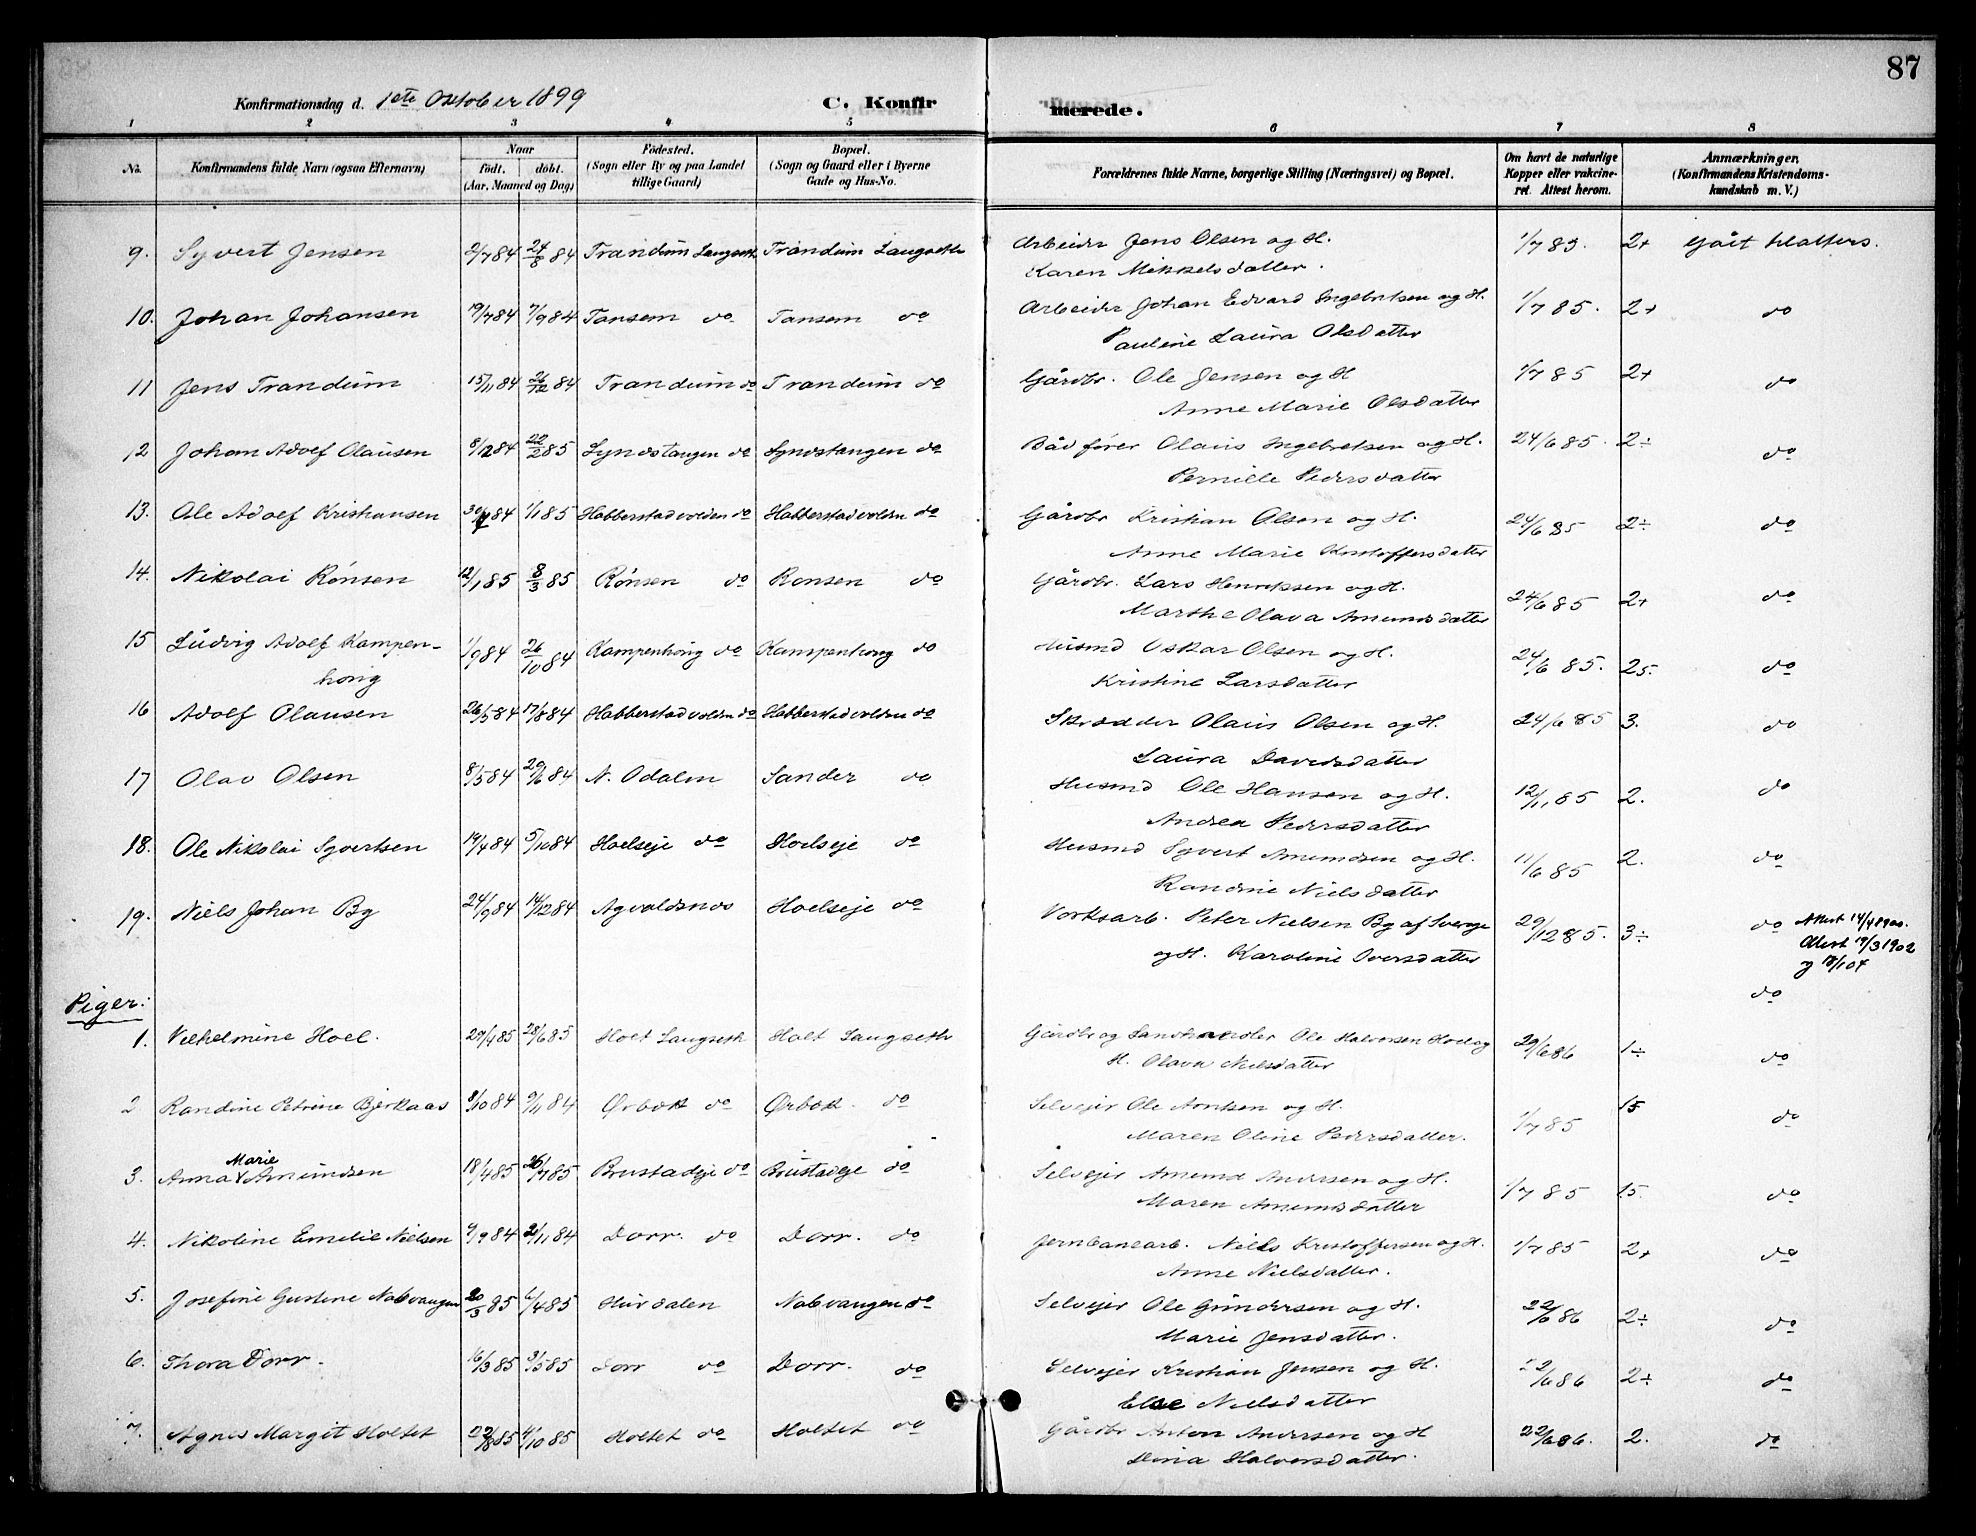 87
Konfirmationsdag d. 1ste Oktober 1899 C. Konfirmerede.
1 2 3 4 5 6 7 8
No. Konfirmandens fulde Navn (ogsaa Efternavn) Naar født. døbt. (Aar, Maaned og Dag) Fødested. (Sogn eller By og paa Landet tillige Gaard) Bopæl. (Sogn og Gaard eller i Byerne Gade og Hus-No.) Forældrenes fulde Navne, borgerlige Stilling (Næringsvei) og Bopæl. Om havt de naturlige Kopper eller vakcineret. Attest herom. Anmærkninger, (Konfirmandens Kristendomskundskab m. V.)
9. Syvert Jensen 2/7 84 24/8 84 Trandum Langseth Trandum Langseth Arbeider Jens Olsen og H. 1/7 85. 2+ Gået platters.
Karen Mikkelsdatter.
10. Johan Johansen 19/7 84 7/9 84 Tansem do Tansem do Arbeider Johan Edvard Ingebretsen og H. 1/7 85. 2+ do
Pauline Laura Olsdatter
11 Jens Trandum 15/11 84 26/12 84 Trandum do Trandum do Gårdbr. Ole Jensen og H 1/7 85 2+ do
Anne Marie Olsdatter
12 Johan Adolf Olausen 8/12 84 22/2 85 Syndstangen do Syndstangen do Bådfører Olaus Ingebretsen og H. 24/6 85. 2÷ do
Pernille Pedersdatter
13. Ole Adolf Kristiansen 84 1/1 85 Habberstadvolden do Habberstadvolden do Gårdbr Kristian Olsen og H. 24/6 85 2÷ do
Anne Marie Kristoffersdatter
14. Nikolai Rønsen 12/1 85 8/3 85 Rønsen do Ronsen do Gårdbr. Lars Henriksen og H. 24/6 85 2+ do
Marthe Olava Amundsdatter
15 Ludvig Adolf Kampen- 1/9 84 26/10 84 Kampenhøug do Kampenhoug do Husmd Oskar Olsen og H. 24/6 85. 25. do
houg Kristine Larsdatter
16 Adolf Olausen 26/5 84 17/8 84 Habberstadvolden do Habberstadvolden do Skrædder Olaus Olsen og H. 24/6 85 3. do
Laura Davidsdatter
17 Olav Olsen 8/5 84 29/6 84 N. Odalen Sander do Husmd Ole Hansen og H. 12/11 85 2. do
Andrea Pedersdatter
18. Ole Nikolai Syvertsen 19/4 84 5/10 84 Hoelseje do Hoelseje do Husmd Syvert Amundsen og H. 11/6 85 2. do
Randine Nielsdatter
19. Niels Johan By 24/9 84 14/12 84 Agvoldsnes Hoelseje do Verksarb. Peter Nielsen By af Sverige 29/12 85. 3÷ do Attest 14/4 1900.
og H. Karoline Iversdatter Attest 19/3 1902
og 18/1 04
Piger: do
1. Vilhelmine Hoel. 29/4 85 28/6 85 Holt Langseth Holt Langseth Gårdbr og Landhandler Ole Halvorsen Hoel og 29/6 86 1÷ do
H. Olava Nielsdatter
2 Randine Petrine Bjerkaas 8/10 84 9/11 84 Ørbæk do Ørbæk. do Selvejer Ole Arntsen og H. 1/7 85 15 do
Maren Oline Pedersdatter.
3. Anna Marie Amundsen 18/4 85 26/7 85 Brustadeje do Brustadeje do Selvejer Amund Andersen og H. 1/7 85 15. do
Maren Amundsdatter
4. Nikoline Emelie Nielsen 9/9 84 2/11 84 Dorr. do Dorr. do Jernbanearb. Niels Kristoffersen og H. 1/7 85 2+ do
Anne Nielsdatter.
5. Josefine Gustine Nabvangen 20/3 85 6/4 85 Hurdalen Nabvangen do Selvejer Ole Gundersen og H. 22/6 86 2÷ do
Marie Jensdatter.
6. Thora Dorr. 16/3 85 3/5 85 Dorr do Dorr. do Selvejer Kristian Jensen og H. 22/6 86 2÷ do
Else Nielsdatter
7. Agnes Margit Holtet 22/8 85 4/10 85 Holtet do Holtet do Gårdbr Anton Andersen og H 22/6 86. 2. do
Dina Halvorsdatter.